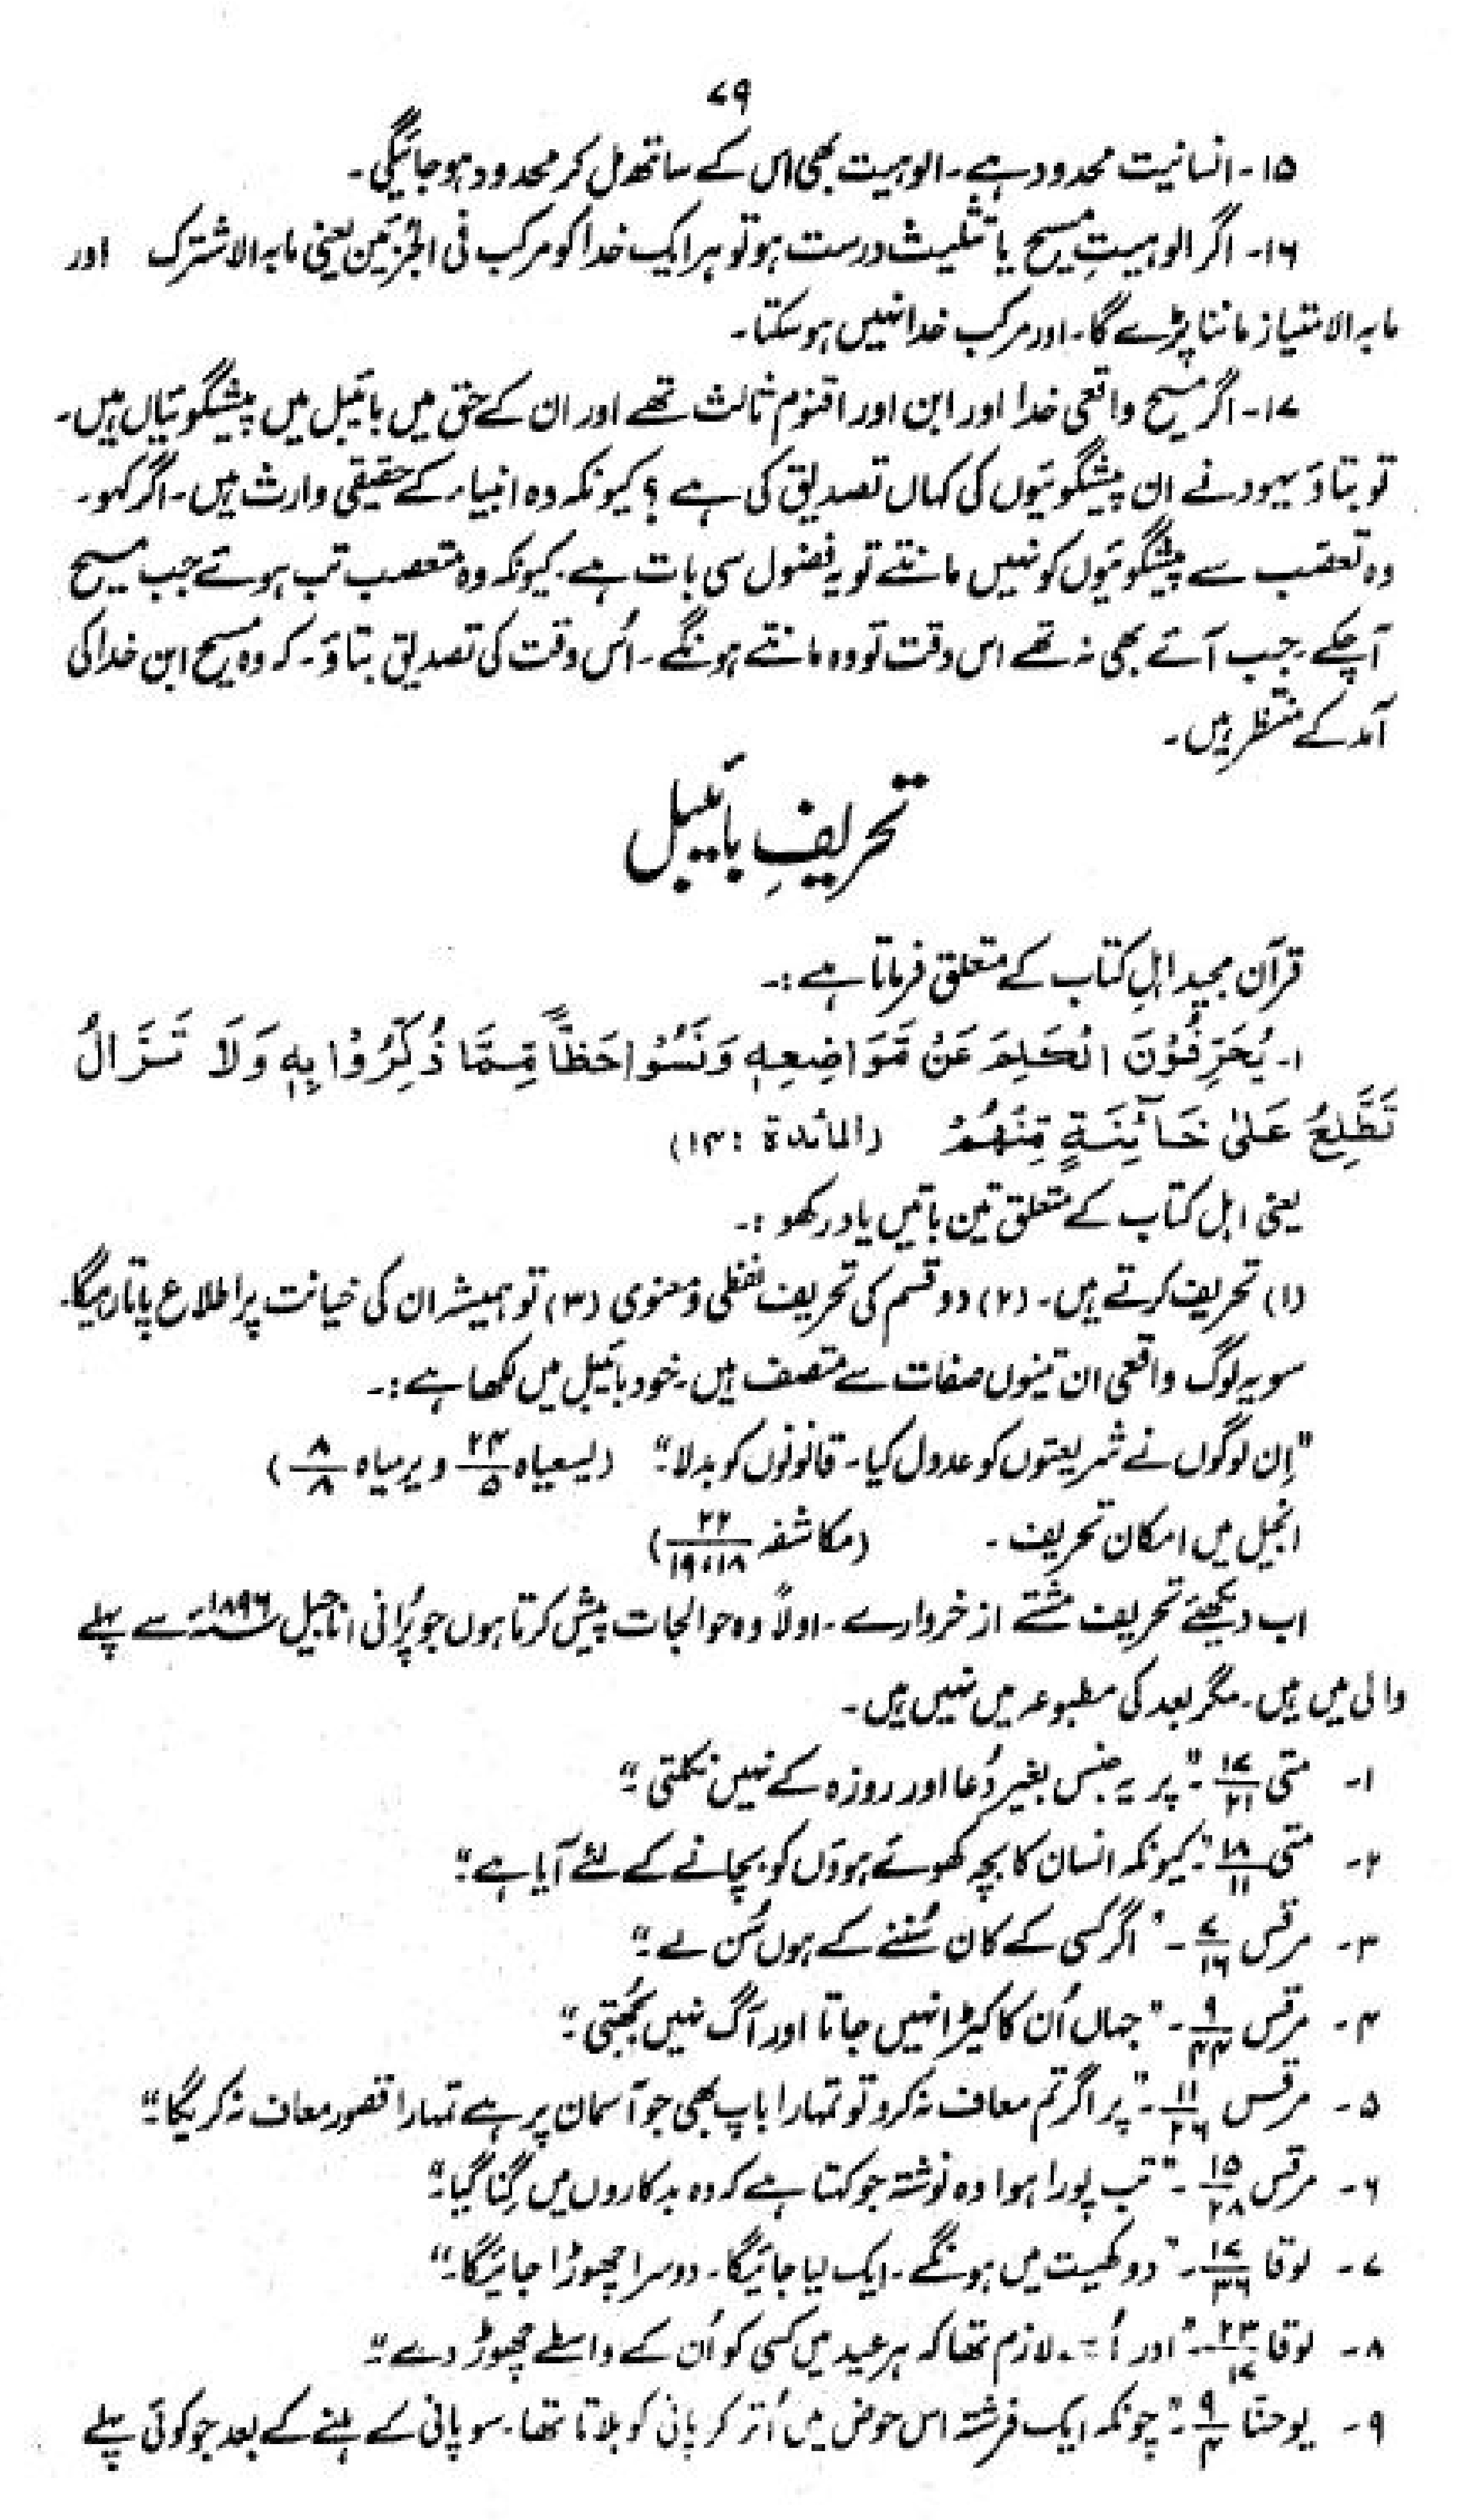 ۷۹
۱۵۔ انسانیت محدود ہے۔ الوہیت بھی اس کے ساتھ مل کر محدود ہو جائیگی۔
۱۶۔ اگر الوہیتِ مسیح یا تثلیث درست ہو تو ہر ایک خدا کو مرکب فی الجزئین یعنی مابہ الاشترک اور
مابہ الامتیاز ماننا پڑے گا۔ اور مرکب خدا نہیں ہوسکتا۔
۱۷۔ اگر مسیح واقعی خدا اور ابن اور اقنوم ثالث تھے اور ان کے حق میں بائیبل میں پیشگوئیاں ہیں۔
تو بتاؤ یہود نے ان پیشگوئیوں کی کہاں تصدیق کی ہے؟ کیونکہ وہ انبیاء کے حقیقی وارث ہیں۔ اگر کہو۔
وہ تعصّب سے پیشگوئیوں کو نہیں مانتے تو یہ فضول سی بات ہے۔ کیونکہ وہ متعصب تب ہوتے جب مسیح
آچکے۔ جب آئے بھی نہ تھے اس وقت تو وہ مانتے ہونگے۔ اُس وقت کی تصدیق بتاؤ۔ کہ وہ مسیح ابن خدا کی
آمد کے منتظر ہیں۔
تحریفِ بائیبل
قرآن مجید اہلِ کتاب کے متعلق فرماتا ہے:۔
۱۔ یُحَرِّفُوْنَ الْکَلِمَ عَنْ مَّوَاضِعِہٖ وَنَسُوْا حَظًّا مِّمَّا ذُکِّرُوْا بِہٖ وَلَا تَزَالُ
تَطَّلِعُ عَلٰی خَآئِنَۃٍ مِّنْھُمْ (المائدۃ : ۱۴)
یعنی اہل کتاب کے متعلق تین باتیں یاد رکھو :۔
(۱) تحریف کرتے ہیں۔ (۲) دو قسم کی تحریف لفظی و معنوی (۳) تو ہمیشہ ان کی خیانت پر اطلاع پاتا رہیگا۔
سو یہ لوگ واقعی ان تینوں صفات سے متصف ہیں۔ خود بائیبل میں لکھا ہے:۔
"اِن لوگوں نے شریعتوں کو عدول کیا۔ قانونوں کو بدلا۔" (یسعیاہ ۲۴/۵ و یرمیاہ ۸/۸)
انجیل میں امکان تحریف۔ (مکاشفہ ۲۲/۱۸،۱۹)
اب دیکھئے تحریف مشتے از خروارے۔ اولاً وہ حوالجات پیش کرتا ہوں جو پُرانی اناجیل ۱۸۹۶ء سے پہلے
والی میں ہیں۔ مگر بعد کی مطبوعہ میں نہیں ہیں۔
۱۔ متی ۱۷/۲۱۔ "پر یہ جنس بغیر دُعا اور روزہ کے نہیں نکلتی۔"
۲۔ متی ۱۸/۱۱۔ "کیونکہ انسان کا بچہ کھوئے ہوؤں کو بچانے کے لئے آیا ہے۔"
۳۔ مرقس ۷/۱۶۔ "اگر کسی کے کان سُننے کے ہوں سُن لے۔"
۴۔ مرقس ۹/۴۴۔ "جہاں اُن کا کیڑا نہیں جاتا اور آگ نہیں بجُھتی۔"
۵۔ مرقس ۱۱/۲۶۔ "پر اگر تم معاف نہ کرو تو تمہارا باپ بھی جو آسمان پر ہے تمہارا قصور معاف نہ کریگا۔"
۶۔ مرقس ۱۵/۲۸۔ "تب پورا ہوا وہ نوشتہ جو کہتا ہے کہ وہ بدکاروں میں گِنا گیا۔"
۷۔ لوقا ۱۷/۳۶۔ "دو کھیت میں ہونگے۔ ایک لیا جائیگا۔ دوسرا چھوڑا جائیگا۔"
۸۔ لوقا ۲۳/۱۷۔ "اور لازم تھا کہ ہر عید میں کسی کو اُن کے واسطے چھوڑ دے۔"
۹۔ یوحنّا ۹/۴۔ "چونکہ ایک فرشتہ اس حوض میں اُتر کر پانی کو ہلاتا تھا۔ سو پانی کے ہلنے کے بعد جو کوئی پہلے